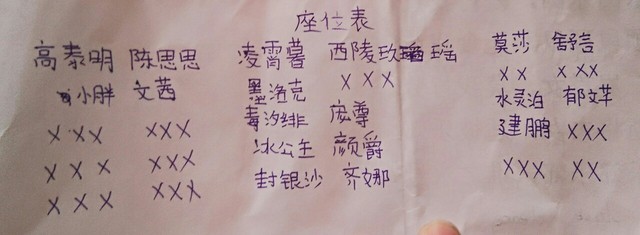 座位表
高泰明 陈思思 凌霄薯 西陵玫瑶 莫莎 舒言
小胖 文茜 墨洛克 XXX XX XXX
XXX XXX 毒汐绯 庞尊 水灵泊 郁文
XXX XXX 冰公主 颜爵 建鹏 XXX
XXX XXX 封银沙 齐娜 XXX XX